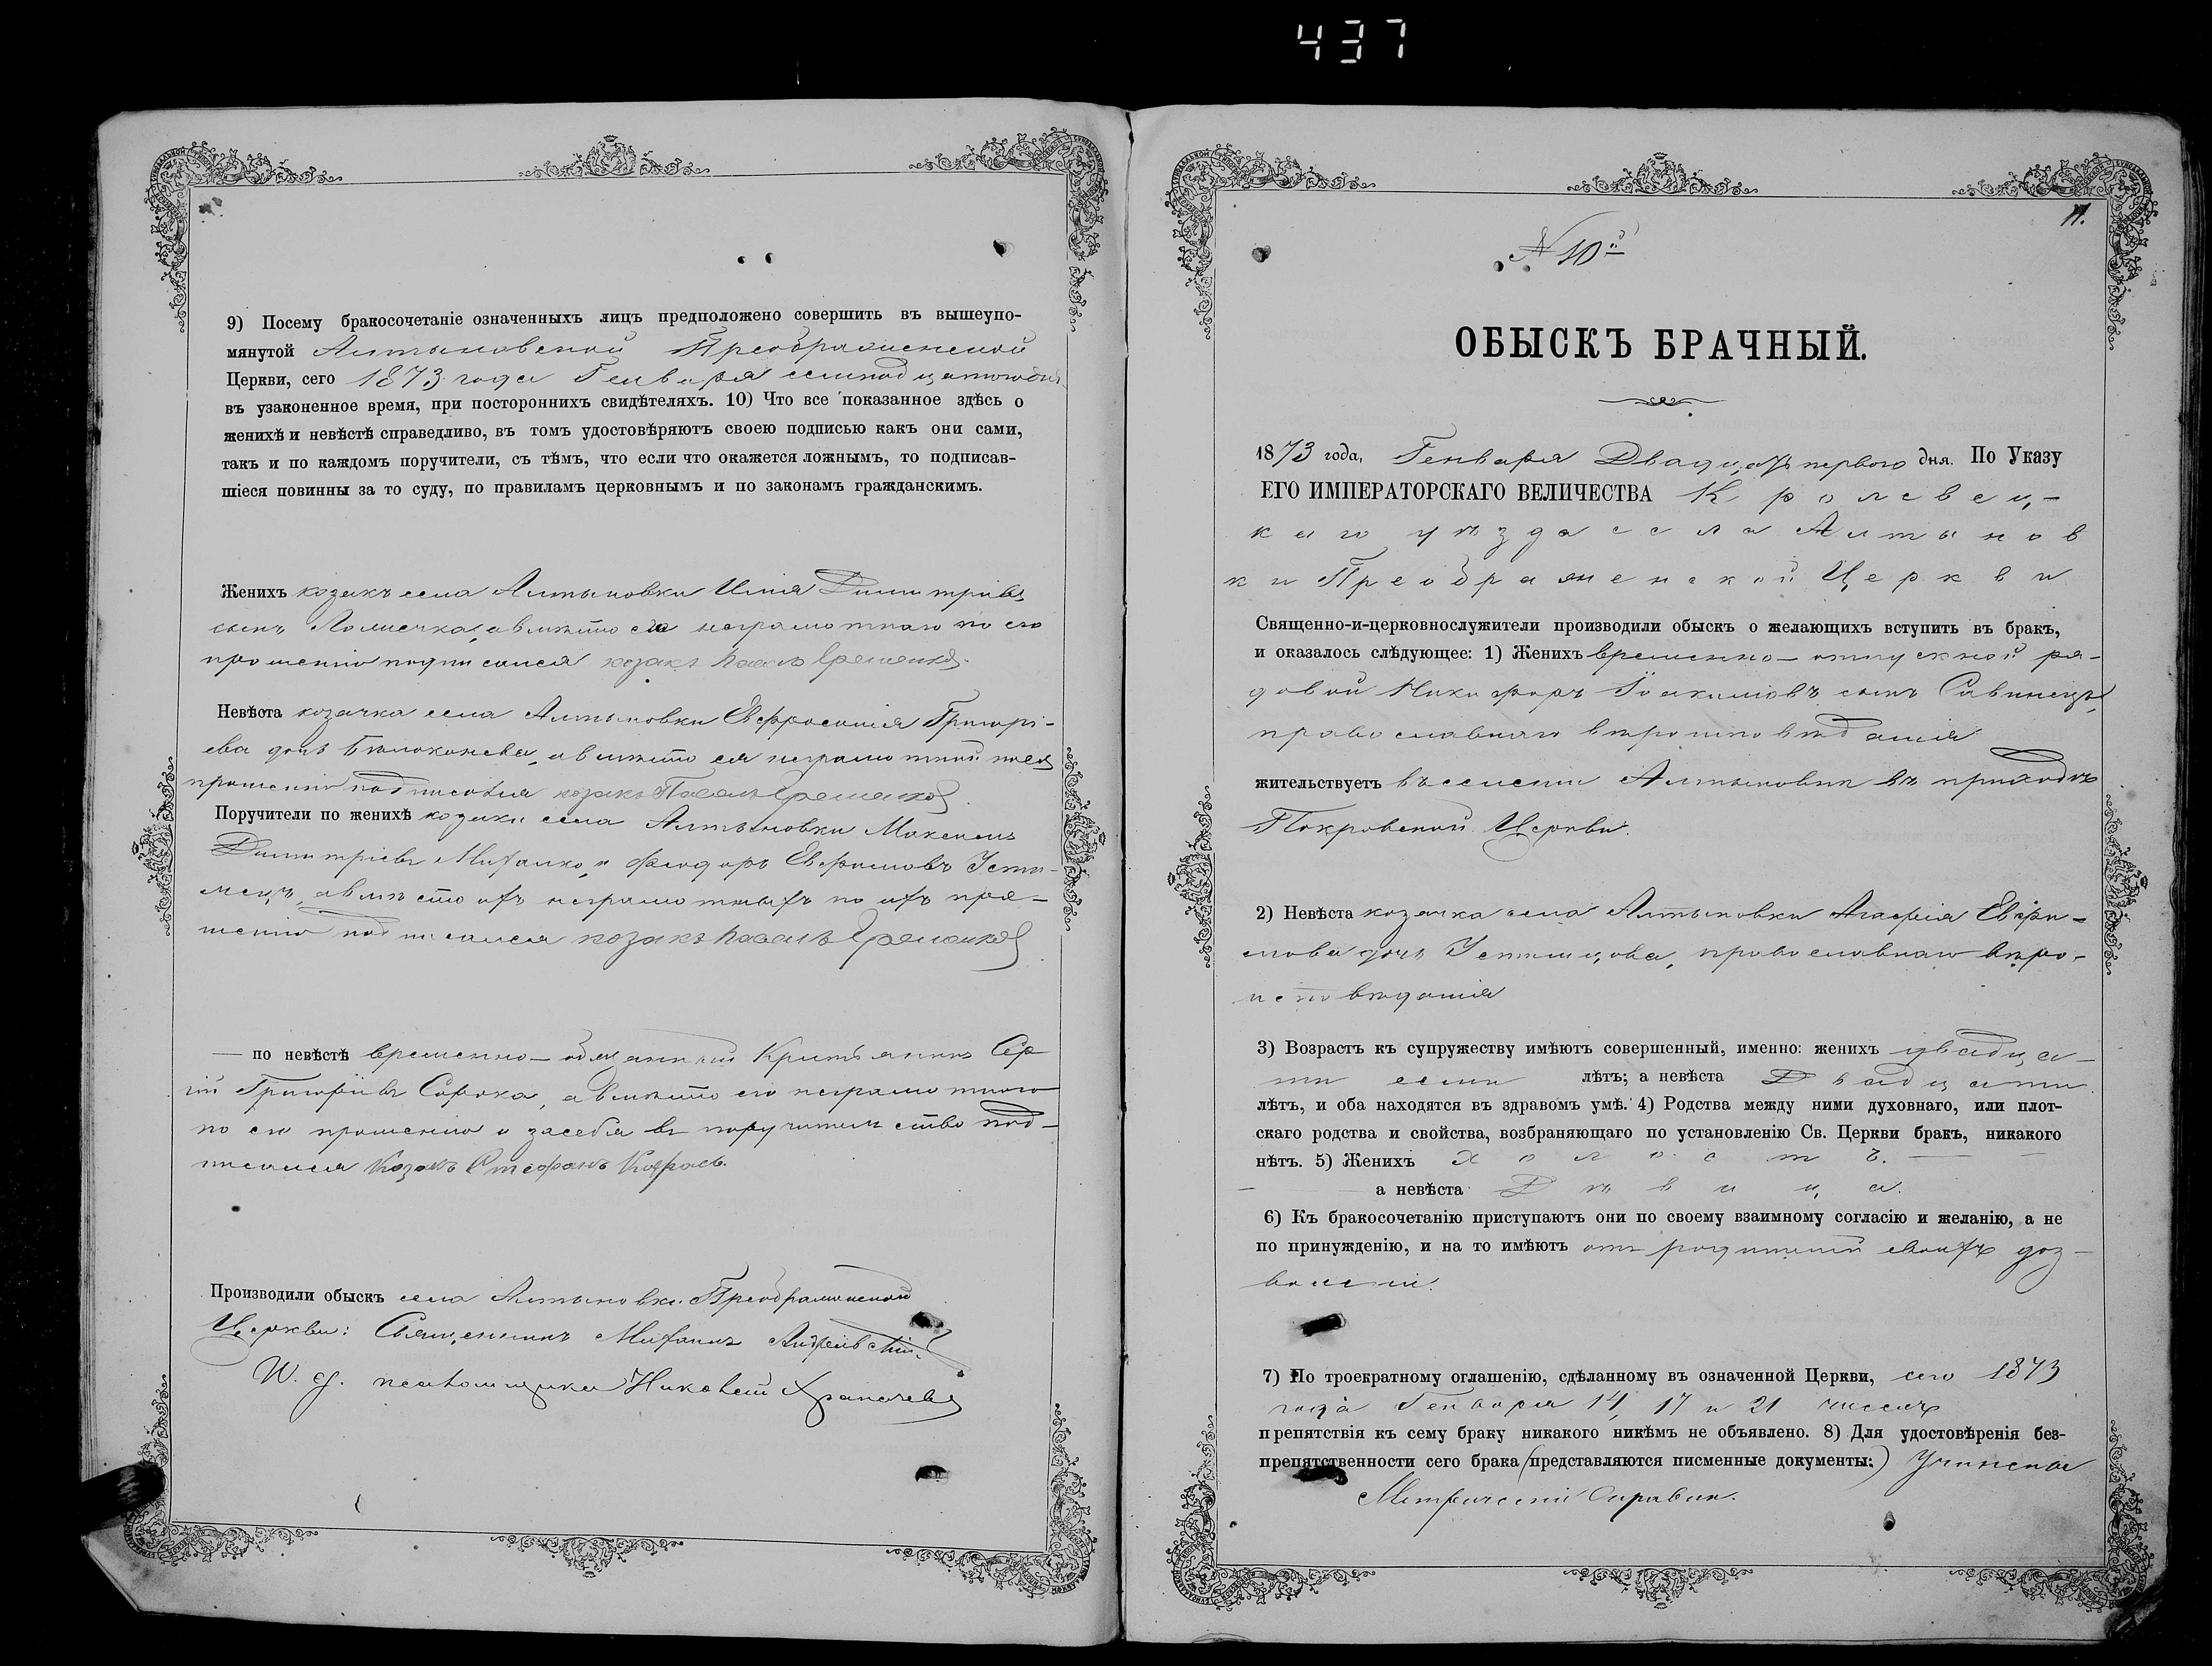 437
9) Посему бракосочетаніе означенныхъ лицъ предположено совершить въ вышеупо-
мянутой Алтыновской Преображенской
Церкви, сего 1873 года Генваря семнадцатогодня
въ узаконенное время, при постороннихъ свидѣтеляхъ. 10) Что все показанное здѣсь о
женихѣ и невѣстѣ справедливо, въ томъ удостовѣряютъ своею подписью какъ они сами,
такъ и по каждомъ поручители, съ тѣмъ, что если что окажется ложнымъ, то подписав-
шіеся повинны за то суду, по правиламъ церковнымъ и по законамъ гражданскимъ.
Женихъ козакъ села Алтыновки Илія Димитріевъ
сынъ а вмѣсто его неграмотнаго по его
прошенію подписался козакъ Павелъ
Невѣста козачка села Алтыновки Евфросинія Григорі-
ева дочь Бѣлоконева, а вмѣсто ея неграмотной по ея
прошенію подписался козакъ Павелъ
Поручители по женихѣ козаки села Алтыновки Максимъ
Димитріевъ и Феодоръ Евфимовъ Усти-
мецъ, а вмѣсто ихъ неграмотныхъ по ихъ про-
шенію подписался козакъ Павелъ
— по невѣстѣ временно-обязанный Сер
гій Григоріевъ Сорока, а вмѣсто его неграмотного
по его прошенію и засебя въ поручительство под-
писался Козакъ Стефанъ
Производили обыскъ села Алтыновки Преображенской
Церкви: Священникъ Михаилъ Андріевскій.
И. д. псаломщика Николай
11.
N 10й
ОБЫСКЪ БРАЧНЫЙ.
1873 года, Генваря Двадцать первого дня. По Указу
ЕГО ИМПЕРАТОРСКАГО ВЕЛИЧЕСТВА Кролевец-
каго уѣзда села Алтынов
ки Преображенской Церкви
Священно-и-церковнослужители производили обыскъ о желающихъ вступить въ бракъ,
и оказалось слѣдующее: 1) Женихъ временно-отпускной ря-
довой Никифоръ Іоакимовъ сынъ Савинецъ,
православнаго вѣроисповѣданія
жительствуетъ въ селеніи Алтыновки въ приходѣ
Покровской Церкви.
2) Невѣста козачка села Алтыновки Агафія Евфи-
мова дочь Устимцова, православнаго вѣро-
исповѣданія
3) Возрастъ къ супружеству имѣютъ совершенный, именно: женихъ двадца-
ти семи лѣтъ; а невѣста Двадцати
лѣтъ, и оба находятся въ здравомъ умѣ. 4) Родства между ними духовнаго, или плот-
скаго родства и свойства, возбраняющаго по установленію Св. Церкви бракъ, никакого
нѣтъ. 5) Женихъ холостъ.
а невѣста Дѣвица.
6) Къ бракосочетанію приступаютъ они по своему взаимному согласію и желанію, а не
по принужденію, и на то имѣютъ отъ родителей своихъ доз-
воленіе.
7) По троекратному оглашенію, сдѣланному въ означенной Церкви, сего 1873
года Генваря 14, 17 и 21 числъ
препятствія къ сему браку никакого никѣмъ не объявлено. 8) Для удостовѣренія без-
препятственности сего брака (представляются писменные документы:) Учинены
Метрическій Справки.